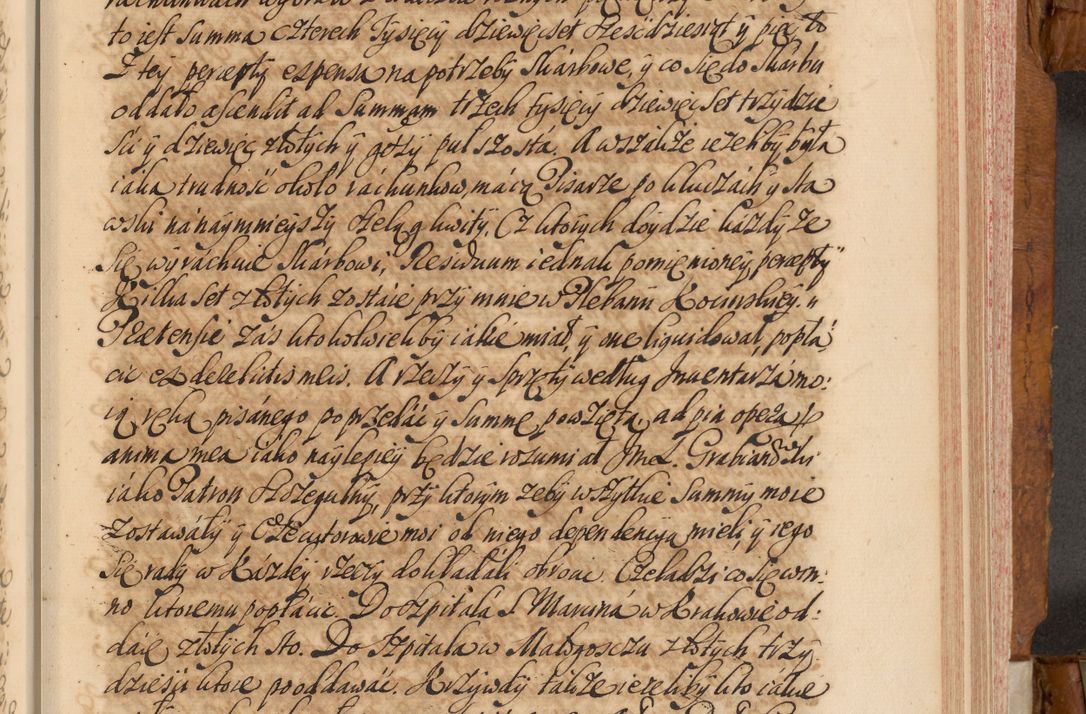 to jest Summa czterech Tysięcy dziewięcset sześcdziesiąt y pięc, bo
Z tey percepty expensa na potrzeby Skarbowe, y co się do Skarbu
oddało ascendit ad Summam trzech tysięcy dziewięcset trzydzie
sci y dziewięc złotych y goży puł szosta. A wszakże ieżeliby była
iaka trudność około rachunkow, maią Pisarze po kluczach y Sta
wski na naymnieyszy szeląg kwity, Cz ktorych doydzie każdy że
się wyrachuie Skarbowi, Residuum iednak pomienioney percepty
Kilka set złotych zostaie przy mnie w Plebanii Kocinskiey.
Praetensie zás ktokolwiekby iakie miał, y one liquidował, popła
cic ex delectis meis. A rzeczy y Sprzęty według Inwentarza mo:
ią ręką pisánego poprzedać y Summę powziętą, ad pia opera p
anima mea iako naylepiey będzie rozumiał Jmć X. Grabianowski
iáko Patron Szczegulny, przy ktorym żeby wszytkie Summy moie
zostawały y Exekutorowie moi od niego dependencyą mieli, y iego
się rady w każdey rzeczy dokładali obroic. Czeladzi co się wm:
no ktoremu popłacic. Do Szpitala S. Marcina w Krakowie od:
daię złotych sto. Do Szpitala w Małogoszczu złotych trzy
dziesci ktore pooddawać. Krzywdy także ieżeliby kto iakie